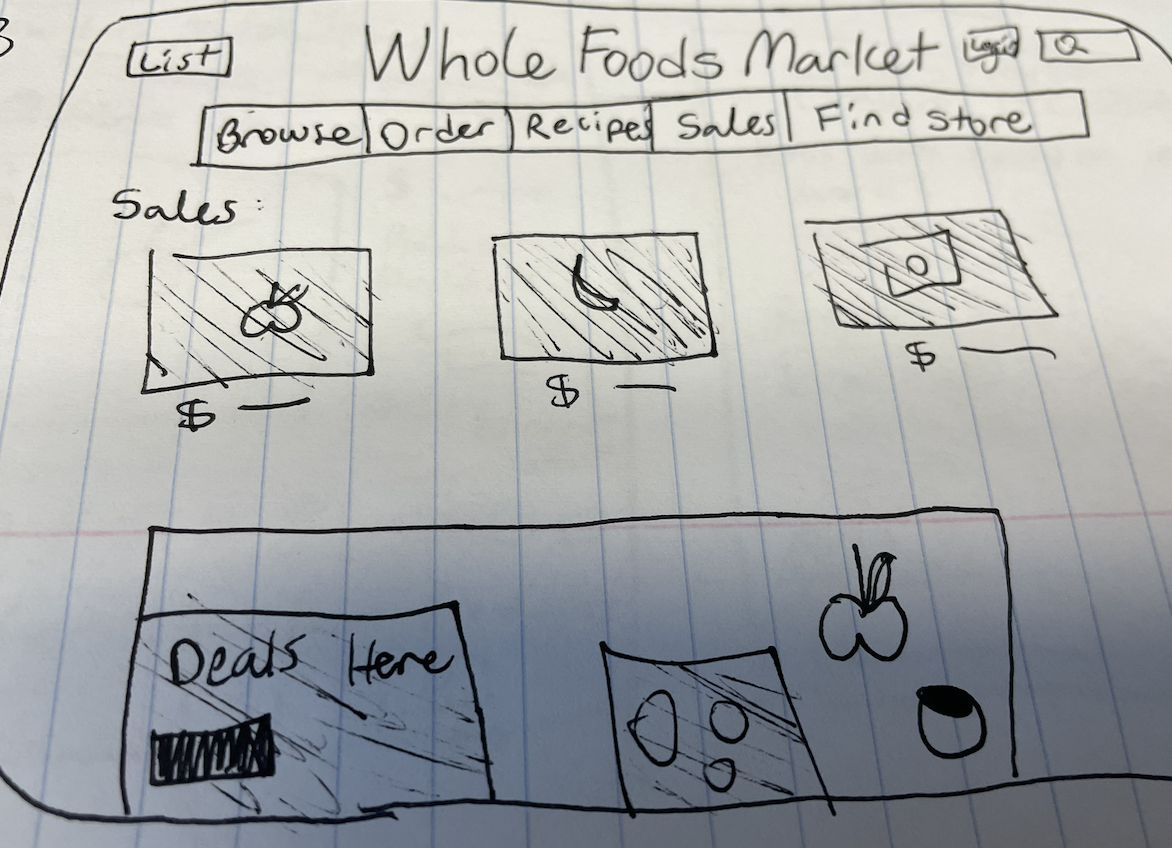 3
List Whole Foods Market Login
Browse Order Recipes Sales Find store
Sales:
$ $ $
Deals Here